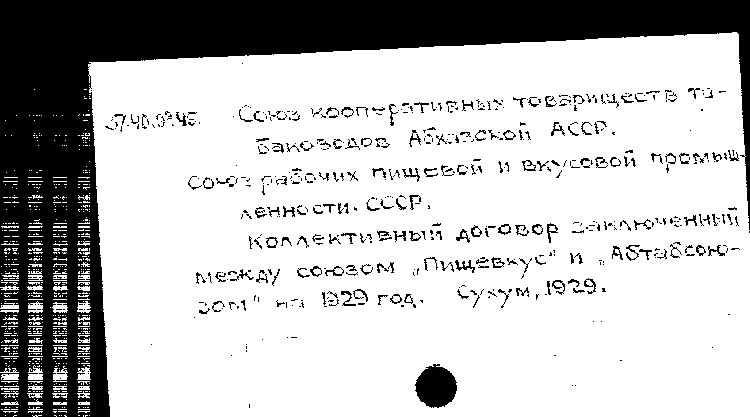 37.40.9945. Союз кооперативных товариществ та-
баководов Абхазской АССР.
Союз рабочих пищевой и вкусовой промыш-
ленности. СССР.
Коллективный договор заключенный
между союзом „Пищевкус" и „Абтабсою-
зом" на 1929 год. Сухум, 1929.